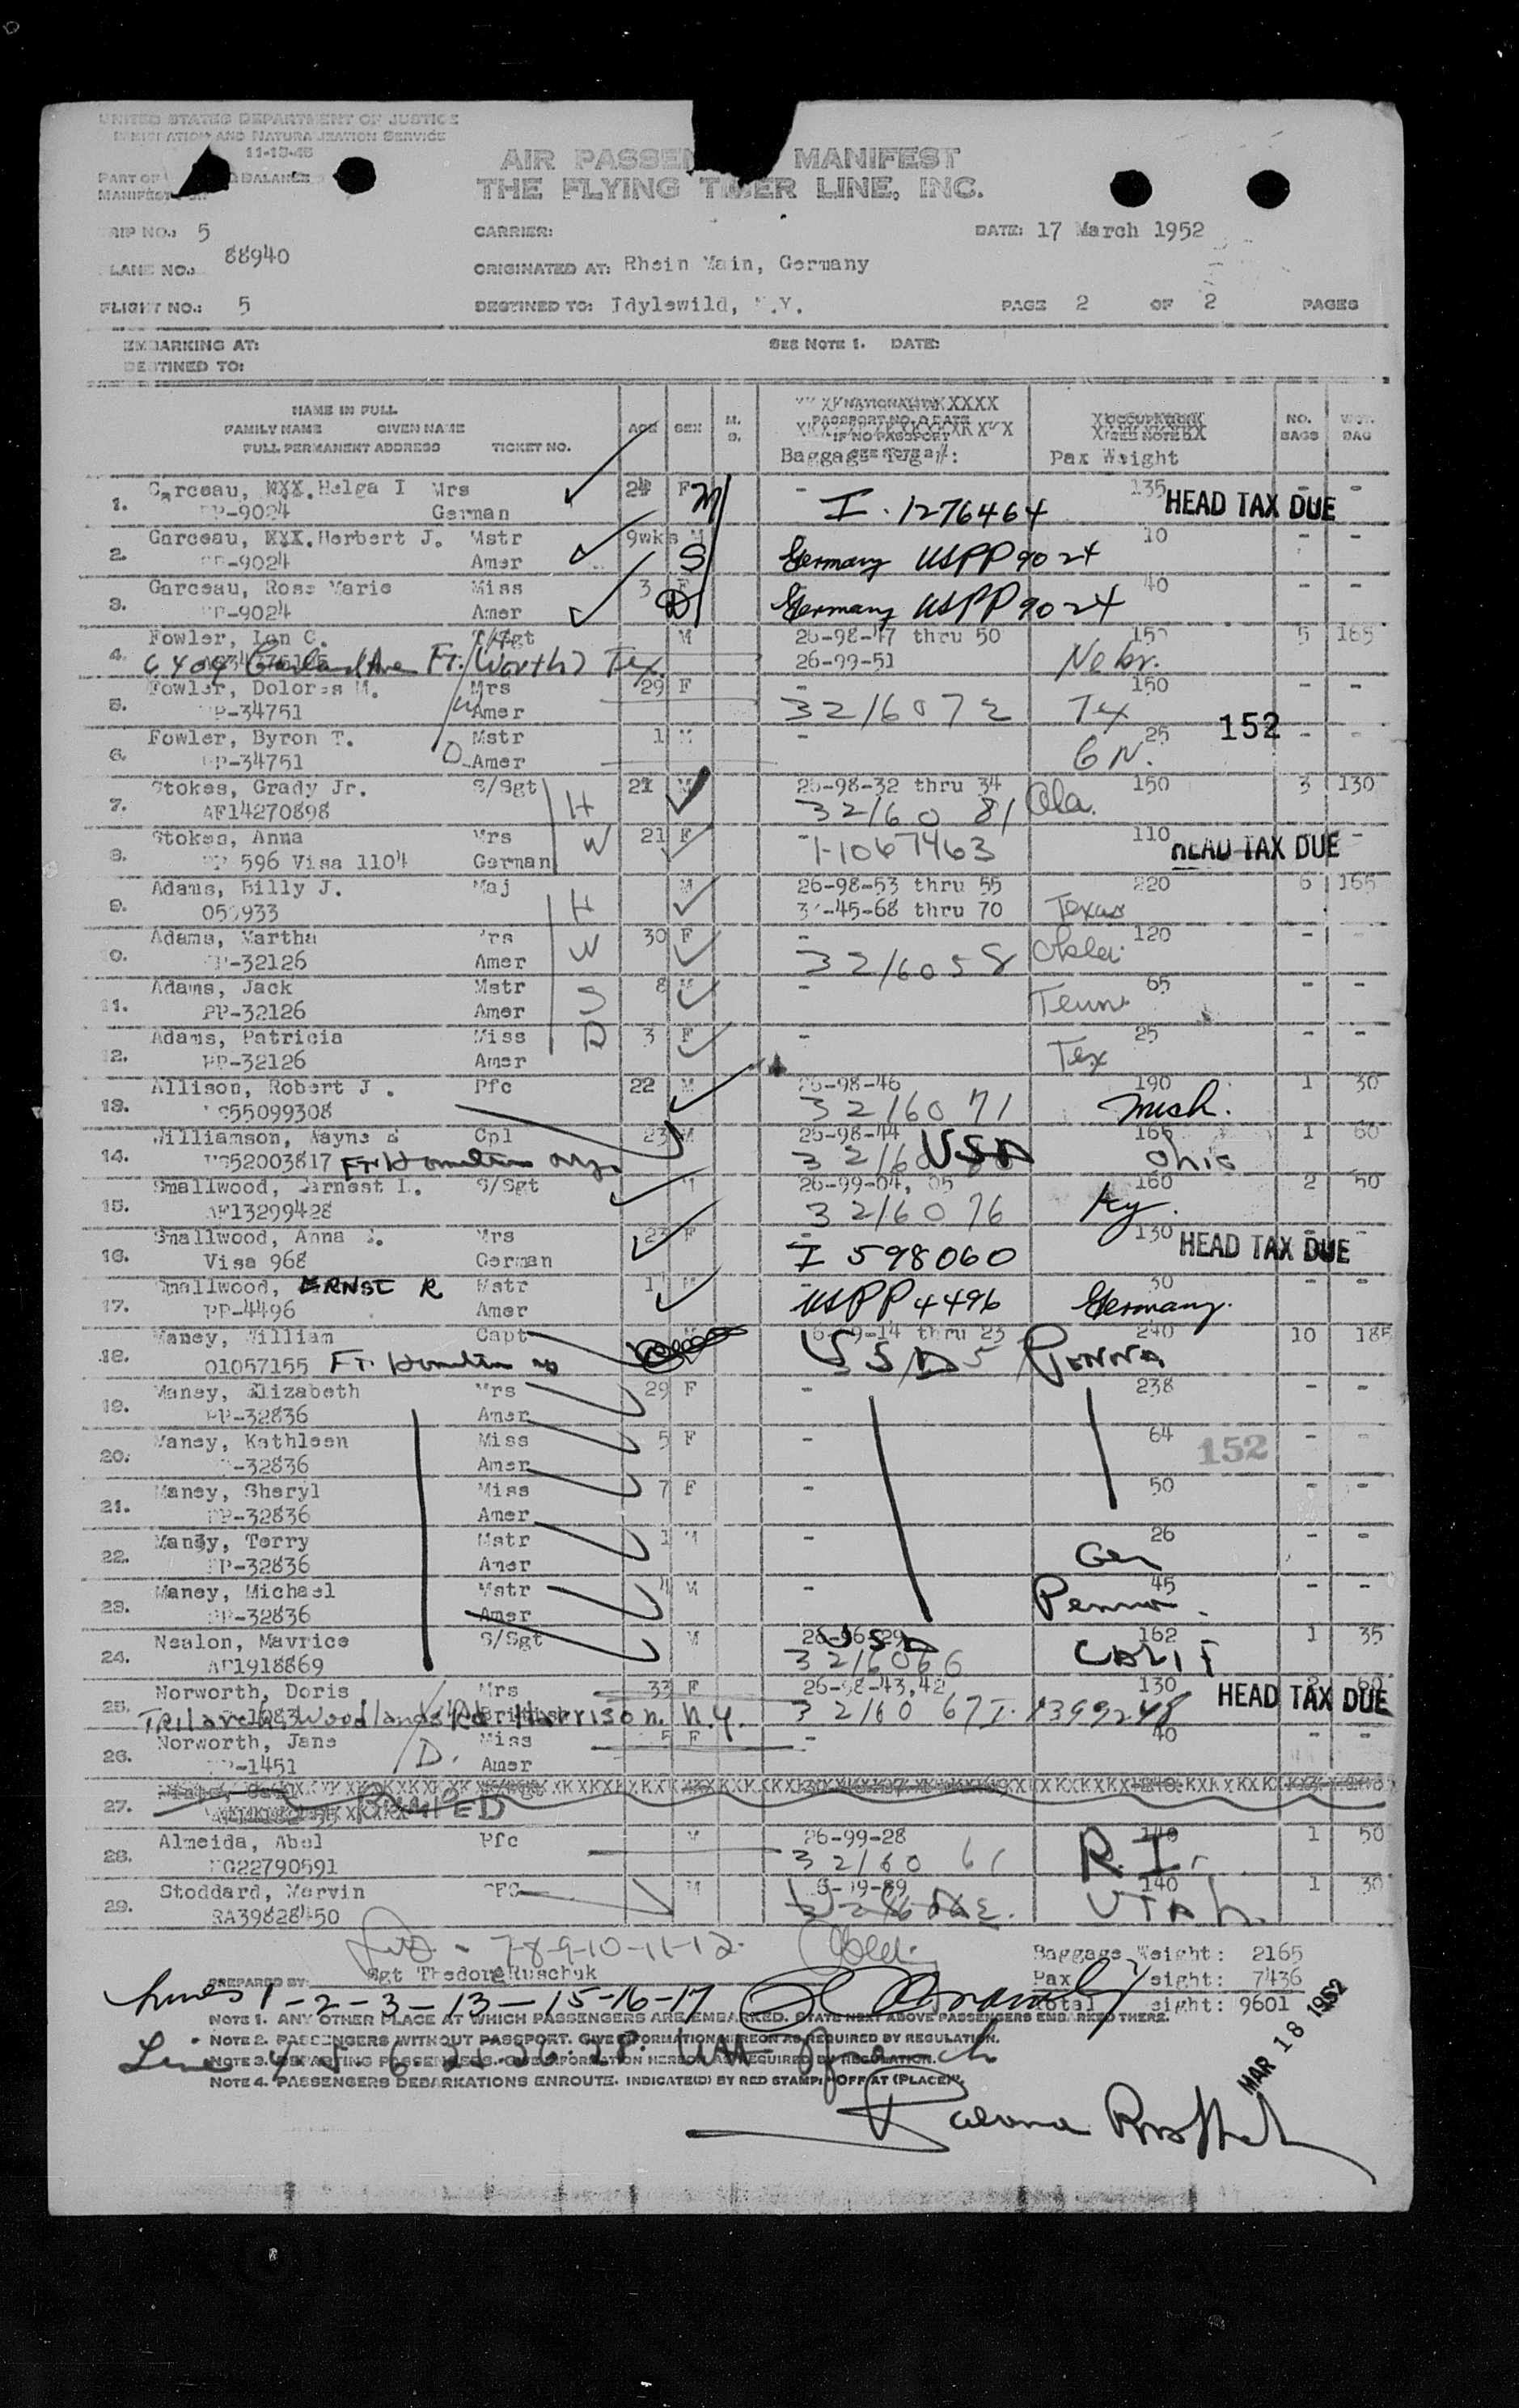 UNITED STATES DEPARTMENT OF JUSTICE
IMMIGRATION AND NATURALIZATION SERVICE
11-15-48
PART OF BALANCE
MANIFEST
AIR PASSEN MANIFEST
THE FLYING TIGER LINE, INC.
RIP NO.: 5
CARRIER:
DATE: 17 March 1952
LANE NO.: 88940
ORIGINATED AT: Rhein Main, Germany
FLIGHT NO.: 5
DESTINED TO: Idylewild, N.Y.
PAGE 2 OF 2 PAGES
EMBARKING AT:
SEE NOTE 1. DATE:
DESTINED TO:
NAME IN FULL
FAMILY NAME GIVEN NAME
FULL PERMANENT ADDRESS TICKET NO.
AGE SEX M. S.
NATIONALITY
PASSPORT NO. & DATE
IF NO PASSPORT
SEE NOTE 2
Baggage Tag #:
OCCUPATION
SEE NOTE 3
Pax Weight
NO. BAGS
WGT. BAG
1. Garceau, Helga I Mrs 24 F M - 135 - -
PP-9024 German I. 1276464 HEAD TAX DUE
2. Garceau, Herbert J. Mstr 9wks M 10 - -
PP-9024 Amer S Germany USPP 9024
3. Garceau, Rose Marie Miss 3 F 40 - -
PP-9024 Amer D Germany USPP 9024
4. Fowler, Ion C. T/Sgt M 26-98-47 thru 50 150 5 165
6409 Garland Ave Ft. Worth Tex. 26-99-51 Nebr.
5. Fowler, Dolores M. Mrs 29 F - 150 - -
PP-34751 W Amer 3216072 Tex
152
6. Fowler, Byron T. Mstr 1 M - 25 - -
PP-34751 D Amer GN.
7. Stokes, Grady Jr. S/Sgt H 21 M 26-98-32 thru 34 150 3 130
AF14270898 3216081 Ala.
8. Stokes, Anna Mrs W 21 F - 110 - -
PP 596 Visa 1104 German 1-1067463 HEAD TAX DUE
9. Adams, Billy J. Maj H M 26-98-53 thru 55 220 6 165
-45-68 thru 70 Texas
10. Adams, Martha Mrs W 30 F - 120 - -
PP-32126 Amer 3216058 Okla.
11. Adams, Jack Mstr S 8 M - 65 - -
PP-32126 Amer Tenn.
12. Adams, Patricia Miss D 3 F - 25 - -
PP-32126 Amer Tex
13. Allison, Robert J. Pfc 22 M 26-98-46 190 1 30
US55099308 3216071 Mich.
14. Williamson, Wayne Cpl 23 M 26-98-44 165 1 60
US52003817 Ft. Hamilton NY USA Ohio
15. Smallwood, Earnest L. S/Sgt M 26-99-04, 05 160 2 50
AF13299428 3216076 Ky.
16. Smallwood, Anna Mrs 23 F - 130 - -
Visa 968 German I 598060 HEAD TAX DUE
17. Smallwood, ERNST R Mstr 1 M - 30 - -
PP-4496 Amer USPP 4496 Germany.
18. Maney, William Capt thru 23 240 10 185
01057155 Ft. Hamilton NY USA Penna
19. Maney, Elizabeth Mrs 29 F - 238 - -
PP-32836 Amer
20. Maney, Kathleen Miss 5 F - 64 - -
PP-32836 Amer
152
21. Maney, Sheryl Miss 7 F - 50 - -
PP-32836 Amer
22. Maney, Terry Mstr 1 M - 26 - -
PP-32836 Amer Ger
23. Maney, Michael Mstr 4 M - 45 - -
PP-32836 Amer Penna.
24. Nealon, Mavrice S/Sgt M USA 162 1 35
AF1918869 3216066 CALIF
25. Norworth, Doris Mrs 33 F 26-98-43,42 130 2 60
Woodlands Rd. Harrison. N.Y. 3216067 I. 1399248 HEAD TAX DUE
26. Norworth, Jane Miss 5 F - 40 - -
PP-1451 D. Amer
27. BUMPED
28. Almeida, Abel Pfc M 26-99-28 140 1 50
NG22790591 3216061 R.I.
29. Stoddard, Marvin PFC M 140 1 30
RA39828450 UTAh.
7-8-9-10-11-12.
Baggage Weight: 2165
PREPARED BY: Sgt Thedore Ruschuk
Pax Weight: 7436
Lines 1-2-3-13-15-16-17
Total Weight: 9601
MAR 18 1952
NOTE 1. ANY OTHER PLACE AT WHICH PASSENGERS ARE EMBARKED. STATE NEXT ABOVE PASSENGERS EMBARKED THERE.
NOTE 2. PASSENGERS WITHOUT PASSPORT. GIVE INFORMATION HEREON AS REQUIRED BY REGULATION.
NOTE 3. DEPARTING PASSENGERS. GIVE INFORMATION HEREON AS REQUIRED BY REGULATION.
Line 4 5 6 25-26-28.
NOTE 4. PASSENGERS DEBARKATIONS ENROUTE. INDICATE(D) BY RED STAMP: "OFF AT (PLACE)".